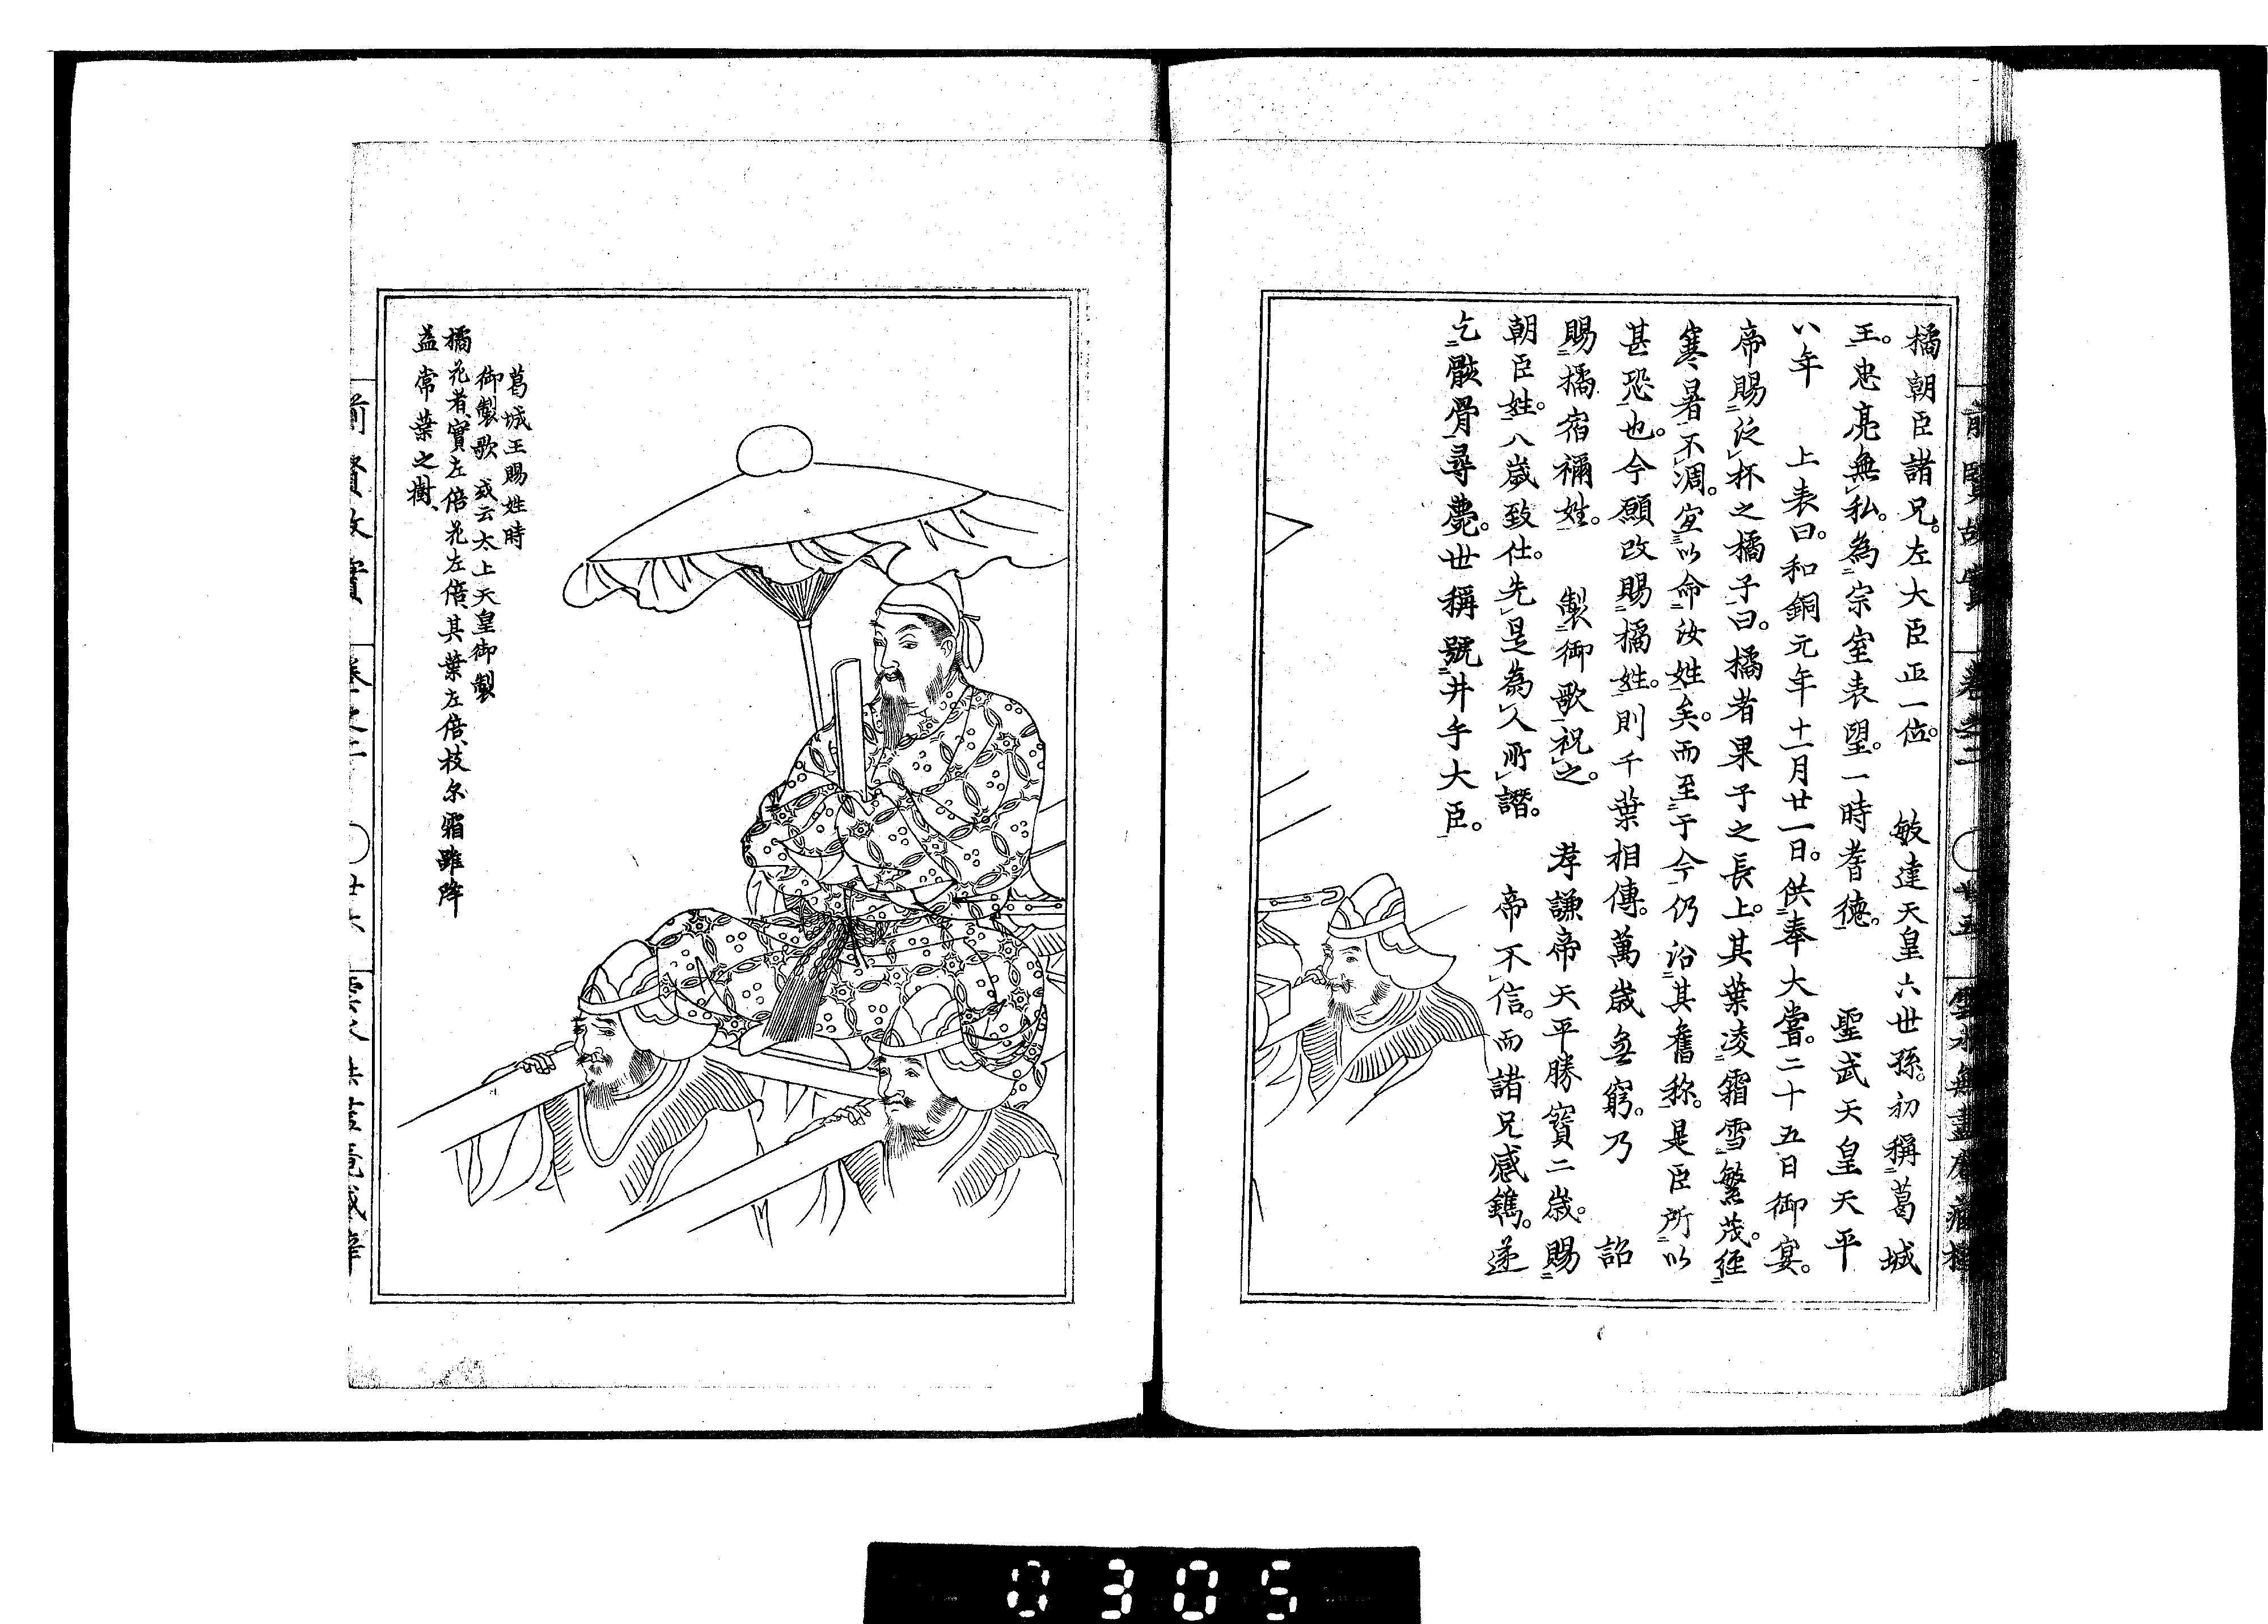 前賢故實 卷之二 〇廿五 雲水無盡庵藏梓
橘朝臣諸兄。左大臣正一位。 敏達天皇六世孫。初稱葛城
王。忠亮無私。為宗室表望。一時耆德。 聖武天皇天平
八年 上表曰。和銅元年十一月廿一日。供奉大嘗。二十五日御宴。
帝賜泛杯之橘子曰。橘者果子之長上。其葉凌霜雪繁茂。經
寒暑不凋。宜以命汝姓矣。而至于今仍沿其舊称。是臣所以
甚恐也。今願改賜橘姓。則千葉相傳。萬歳無窮。乃 詔
賜橘宿禰姓。 製御歌祝之。 孝謙帝天平勝寶二歳。賜
朝臣姓。八歳致仕。先是為人所譖。 帝不信。而諸兄感鐫。遂
乞骸骨尋薨。世稱號井手大臣。
葛城王賜姓時
御製歌 或云太上天皇御製
橘花者、實左倍花左倍、其葉左倍、枝尓霜雖降
益常葉之樹、